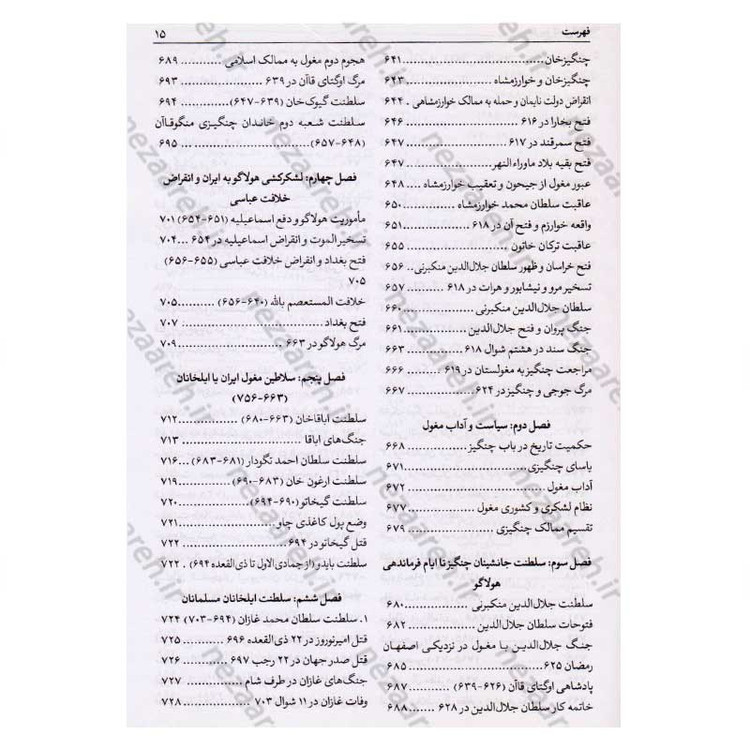 فهرست ۱۵
چنگیزخان .......... ۶۴۱
چنگیزخان و خوارزمشاه .......... ۶۴۳
انقراض دولت نایمان و حمله به ممالک خوارزمشاهی . ۶۴۴
فتح بخارا در ۶۱۶ .......... ۶۴۶
فتح سمرقند در ۶۱۷ .......... ۶۴۷
فتح بقیه بلاد ماوراء النهر .......... ۶۴۷
عبور مغول از جیحون و تعقیب خوارزمشاه .... ۶۴۸
عاقبت سلطان محمد خوارزمشاه .......... ۶۵۰
واقعه خوارزم و فتح آن در ۶۱۸ .......... ۶۵۱
عاقبت ترکان خاتون .......... ۶۵۵
فتح خراسان و ظهور سلطان جلال‌الدین منکبرنی .. ۶۵۶
تسخیر مرو و نیشابور و هرات در ۶۱۸ ...... ۶۵۷
سلطان جلال‌الدین منکبرنی .......... ۶۶۰
جنگ پروان و فتح جلال‌الدین .......... ۶۶۱
جنگ سند در هشتم شوال ۶۱۸ .......... ۶۶۳
مراجعت چنگیز به مغولستان در ۶۱۹ ....... ۶۶۶
مرگ جوجی و چنگیز در ۶۲۴ .......... ۶۶۷
فصل دوم: سیاست و آداب مغول
حکمیت تاریخ در باب چنگیز .......... ۶۶۸
یاسای چنگیزی .......... ۶۷۱
آداب مغول .......... ۶۷۲
نظام لشکری و کشوری مغول .......... ۶۷۷
تقسیم ممالک چنگیزی .......... ۶۷۹
فصل سوم: سلطنت جانشینان چنگیز تا ایام فرماندهی
هولاگو
سلطنت جلال‌الدین منکبرنی .......... ۶۸۰
فتوحات سلطان جلال‌الدین .......... ۶۸۲
جنگ جلال‌الدین با مغول در نزدیکی اصفهان
رمضان ۶۲۵ .......... ۶۸۵
پادشاهی اوگتای قاآن (۶۲۶-۶۳۹) .......... ۶۸۷
خاتمه کار سلطان جلال‌الدین در ۶۲۸ ....... ۶۸۸
هجوم دوم مغول به ممالک اسلامی .......... ۶۸۹
مرگ اوگتای قاآن در ۶۳۹ .......... ۶۹۳
سلطنت گیوک‌خان (۶۳۹-۶۴۷) .......... ۶۹۴
سلطنت شعبه دوم خاندان چنگیزی منگوقاآن
(۶۴۸-۶۵۷) .......... ۶۹۵
فصل چهارم: لشکرکشی هولاگو به ایران و انقراض
خلافت عباسی
مأموریت هولاگو و دفع اسماعیلیه (۶۵۱-۶۵۴) ۷۰۱
تسخیر الموت و انقراض اسماعیلیه در ۶۵۴ ... ۷۰۴
فتح بغداد و انقراض خلافت عباسی (۶۵۵-۶۵۶)
۷۰۵
خلافت المستعصم بالله (۶۴۰-۶۵۶) .......... ۷۰۵
فتح بغداد .......... ۷۰۷
مرگ هولاگو در ۶۶۳ .......... ۷۰۹
فصل پنجم: سلاطین مغول ایران یا ایلخانان
(۶۶۳-۷۵۶)
سلطنت اباقاخان (۶۶۳-۶۸۰) .......... ۷۱۲
جنگ‌های اباقا .......... ۷۱۳
سلطنت سلطان احمد تگودار (۶۸۱-۶۸۳) ... ۷۱۶
سلطنت ارغون خان (۶۸۳-۶۹۰) .......... ۷۱۹
سلطنت گیخاتو (۶۹۰-۶۹۴) .......... ۷۲۰
وضع پول کاغذی چاو .......... ۷۲۱
قتل گیخاتو در ۶۹۴ .......... ۷۲۲
سلطنت بایدو (از جمادی الاول تا ذی القعده ۶۹۴) . ۷۲۲
فصل ششم: سلطنت ایلخانان مسلمانان
۱. سلطنت سلطان محمد غازان (۶۹۴-۷۰۳) ۷۲۴
قتل امیرنوروز در ۲۲ ذی القعده ۶۹۶ ....... ۷۲۵
قتل صدر جهان در ۲۲ رجب ۶۹۷ .......... ۷۲۶
جنگ‌های غازان در طرف شام .......... ۷۲۷
وفات غازان در ۱۱ شوال ۷۰۳ .......... ۷۲۸
nezaareh.ir